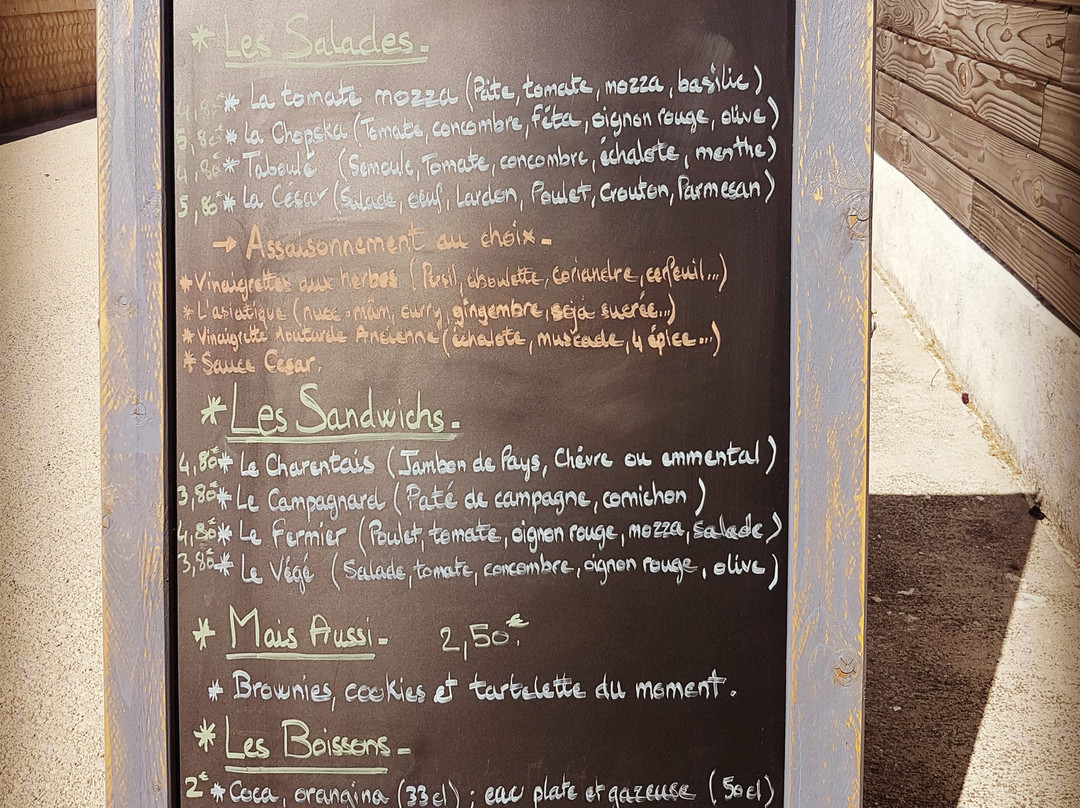 * Les Salades.
4,80€ * La tomate mozza (Pâte, tomate, mozza, basilic)
5,80€ * La Chopska (Tomate, concombre, féta, oignon rouge, olive)
4,80€ * Taboulé (Semoule, Tomate, concombre, échalote, menthe)
5,80€ * La César (Salade, oeuf, Lardon, Poulet, Crouton, Parmesan)
→ Assaisonnement au choix.
* Vinaigrettes aux herbes (Persil, ciboulette, coriandre, cerfeuil...)
* L'asiatique (nuoc-mâm, curry, gingembre, soja sucrée...)
* Vinaigrette Moutarde Ancienne (échalote, muscade, 4 épice...)
* Sauce Cesar.
* Les Sandwichs.
4,80€ * Le Charentais (Jambon de Pays, Chévre ou emmental)
3,80€ * Le Campagnard (Paté de campagne, cornichon)
4,80€ * Le Fermier (Poulet, tomate, oignon rouge, mozza, salade)
3,80€ * Le Végé (Salade, tomate, concombre, oignon rouge, olive)
* Mais Aussi. 2,50€.
* Brownies, cookies et tartelette du moment.
* Les Boissons.
2€ * Coca, orangina (33cl) ; eau plate et gazeuse (50cl)